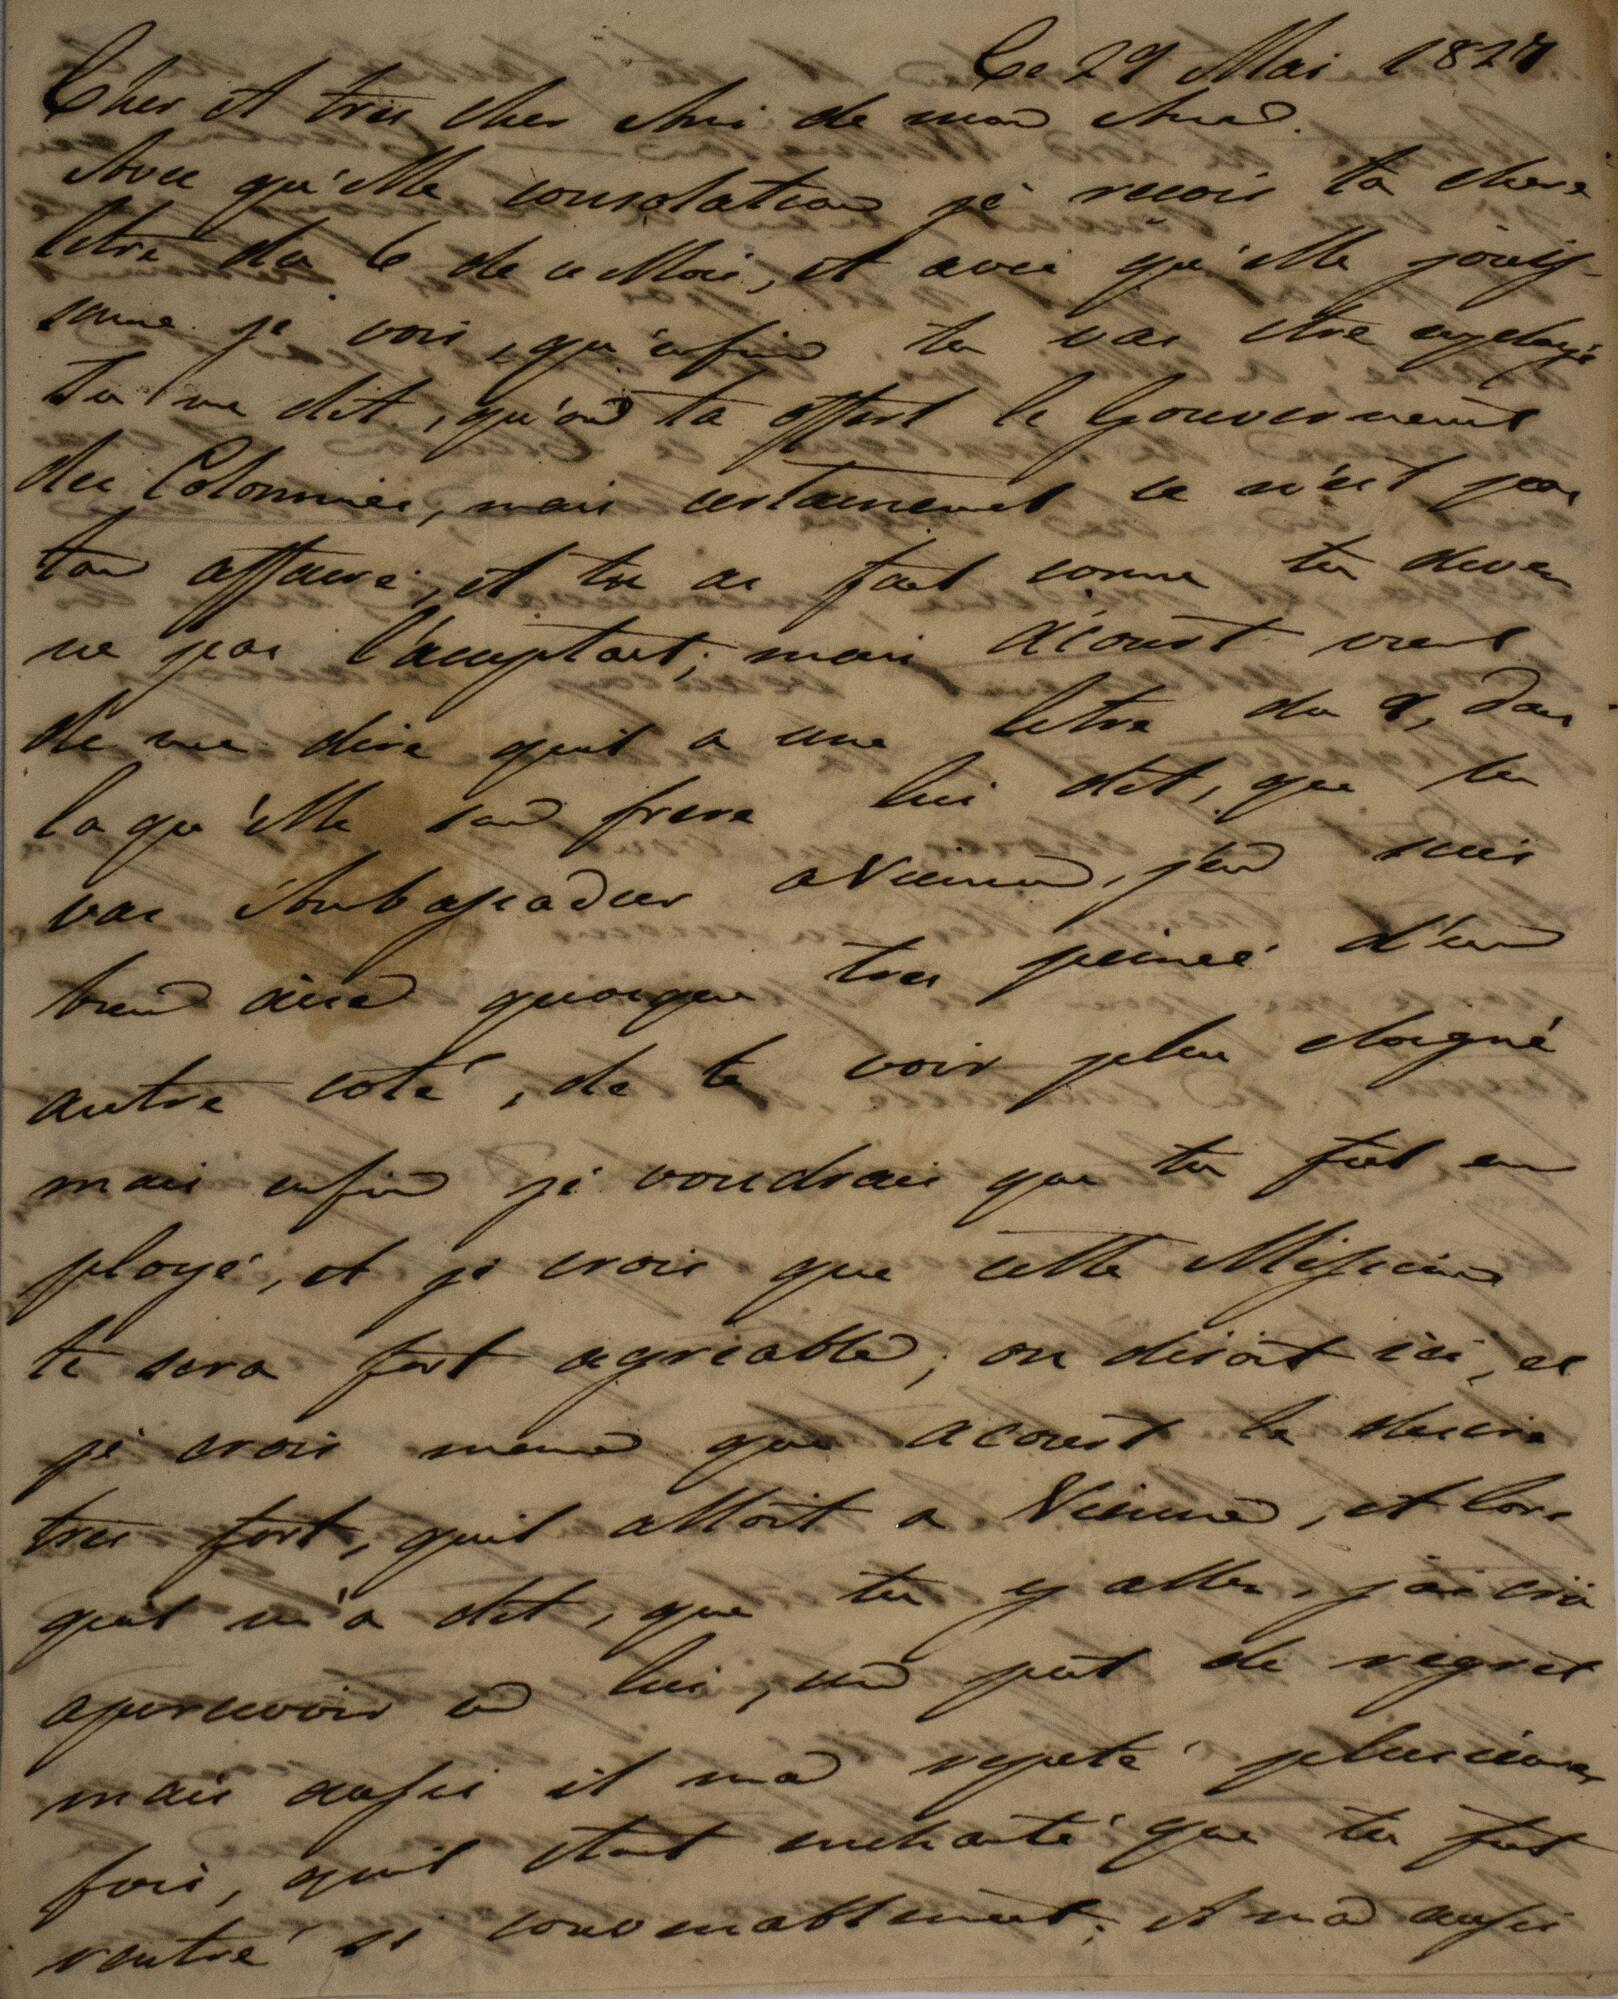 Ce 29 Mai 1827
Cher et tres cher Ami de mon Ame.
Avec qu'elle consolation je recois ta chere
letre du 6 de ce Mois, et avec qu'elle jouis-
sance je vois, qu'enfin tu vas etre employé
Tu me dit, qu'on ta offert le Gouvernement
des Colonnies, mais certainement ce n'est pas
ton affaire, et tu as fait come tu devez
ne pas l'acceptant; mais Acourt vient
de me dire quil a une letre du 9, dans
la qu'elle son frere lui dit, que tu
vas Ambassadeur a Vienne, j'en suis
bien aise quoique tres peineé d'un
autre coté, de te voir plus eloigné
mais enfin je voudrais que tu fut em
ployé, et je crois que cette Mission
te sera fort agreable; on disoit ici, et
je crois meme que Acourt le desire
tres fort, quil alloit a Vienne, et lors
quil m'a dit, que tu y aller, j'ai crû
apercevoir en lui, un petit de regret
mais aussi il ma repeté plusieures
fois, quil etait enchanté que tu fut
rentré si convenablement; et ma aussi